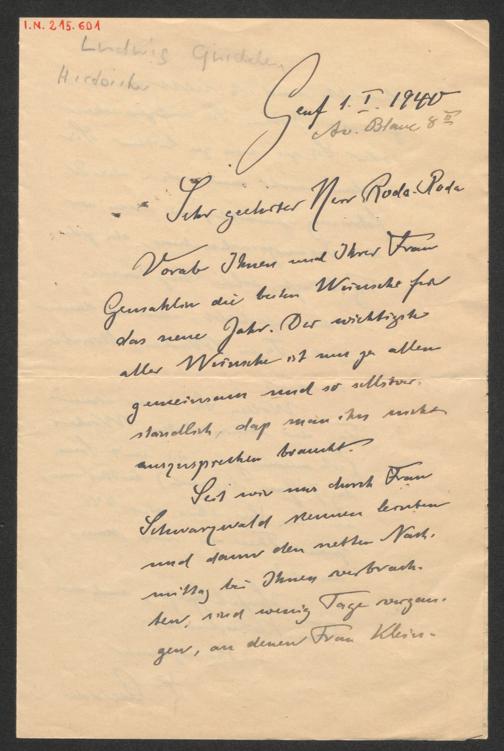 I.N. 215.601
Ludwig
Historiker
Genf 1. I. 1940
Av. Blanc 8
Sehr geehrter Herr Roda-Roda
Vorab Ihnen und Ihrer Frau
Gemahlin die besten Wünsche für
das neue Jahr. Der wichtigste
aller Wünsche ist uns ja allen
gemeinsam und so selbstver-
ständlich, dass man ihn nicht
auszusprechen braucht.
Seit wir uns durch Frau
Schwarzwald kennen lernten
und dann den netten Nach-
mittag bei Ihnen verbrach-
ten, sind wenig Tage vergan-
gen, an denen Frau Klein-